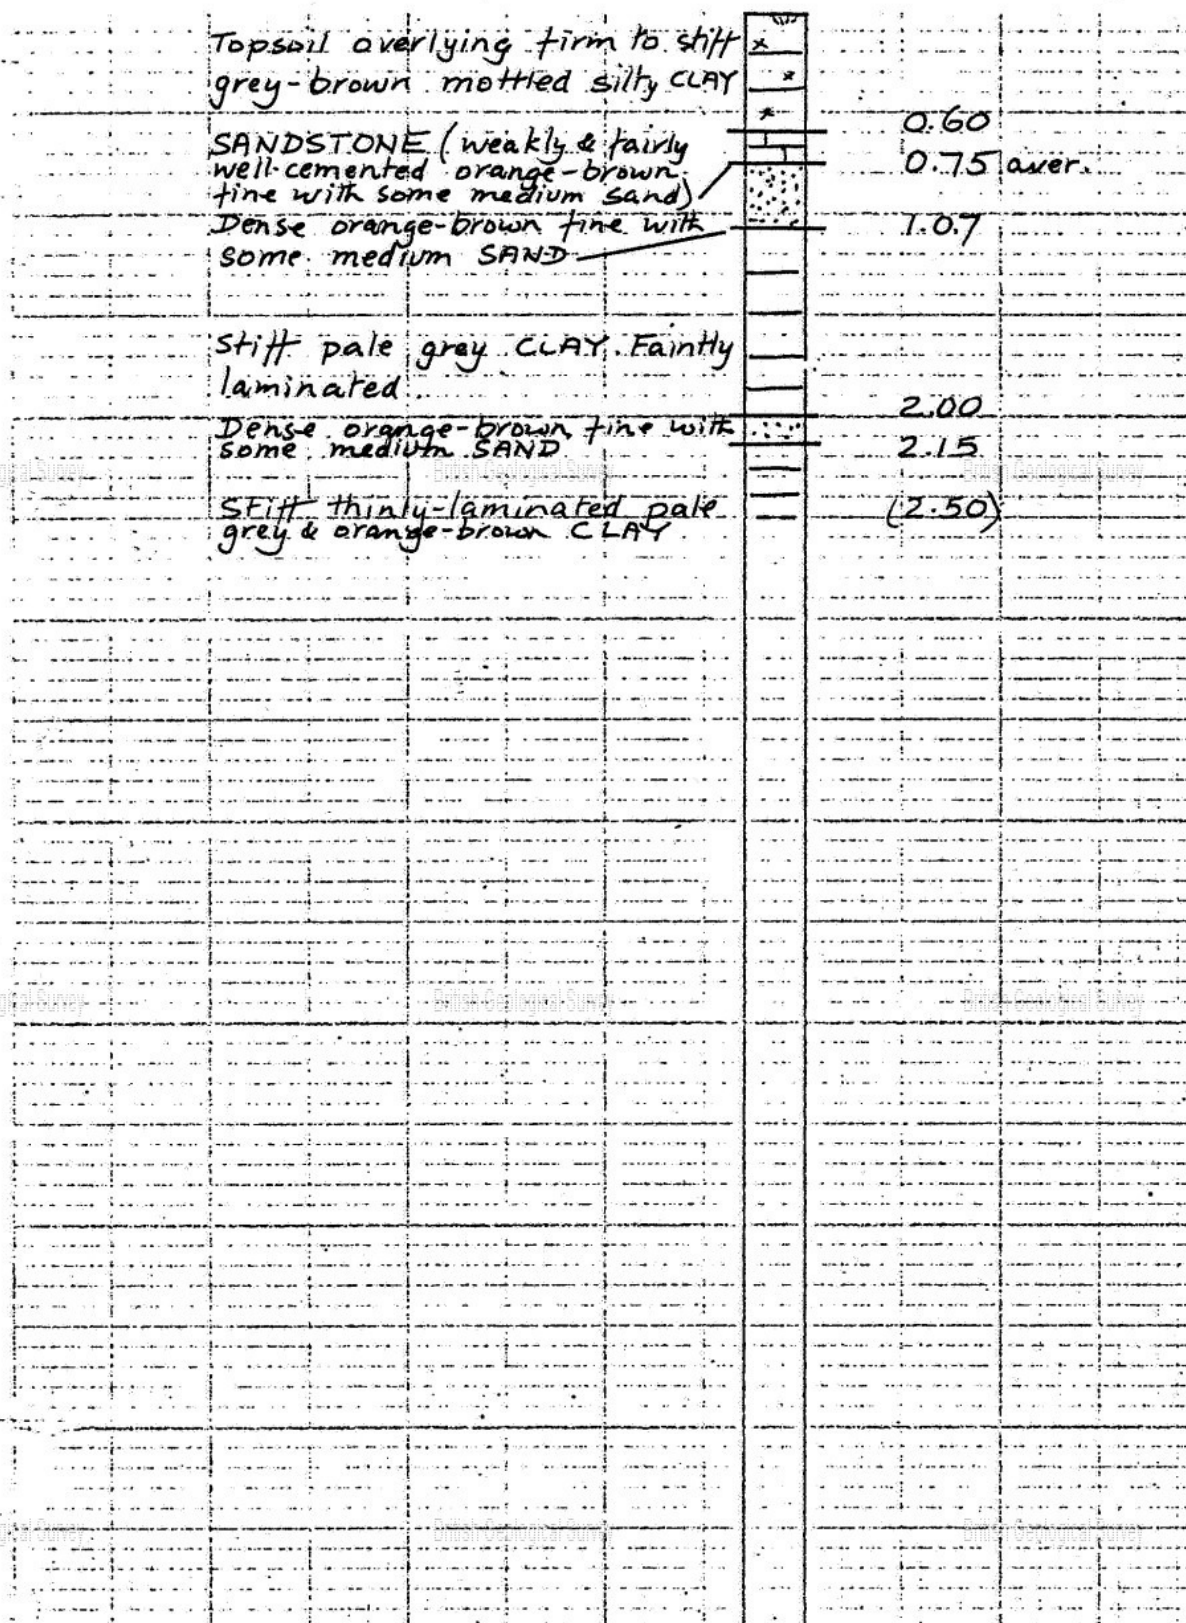 Topsoil overlying firm to stiff
grey-brown mottled silty CLAY
0.60
SANDSTONE (weakly & fairly
well-cemented orange-brown
fine with some medium sand)
0.75 aver.
Dense orange-brown fine with
some medium SAND
1.07
Stiff pale grey CLAY. Faintly
laminated.
2.00
Dense orange-brown fine with
some medium SAND
2.15
Stiff thinly-laminated pale
grey & orange-brown CLAY
(2.50)
gical Survey
British Geological Survey
British Geological Survey
gical Survey
British Geological Survey
British Geological Survey
gical Survey
British Geological Survey
British Geological Survey